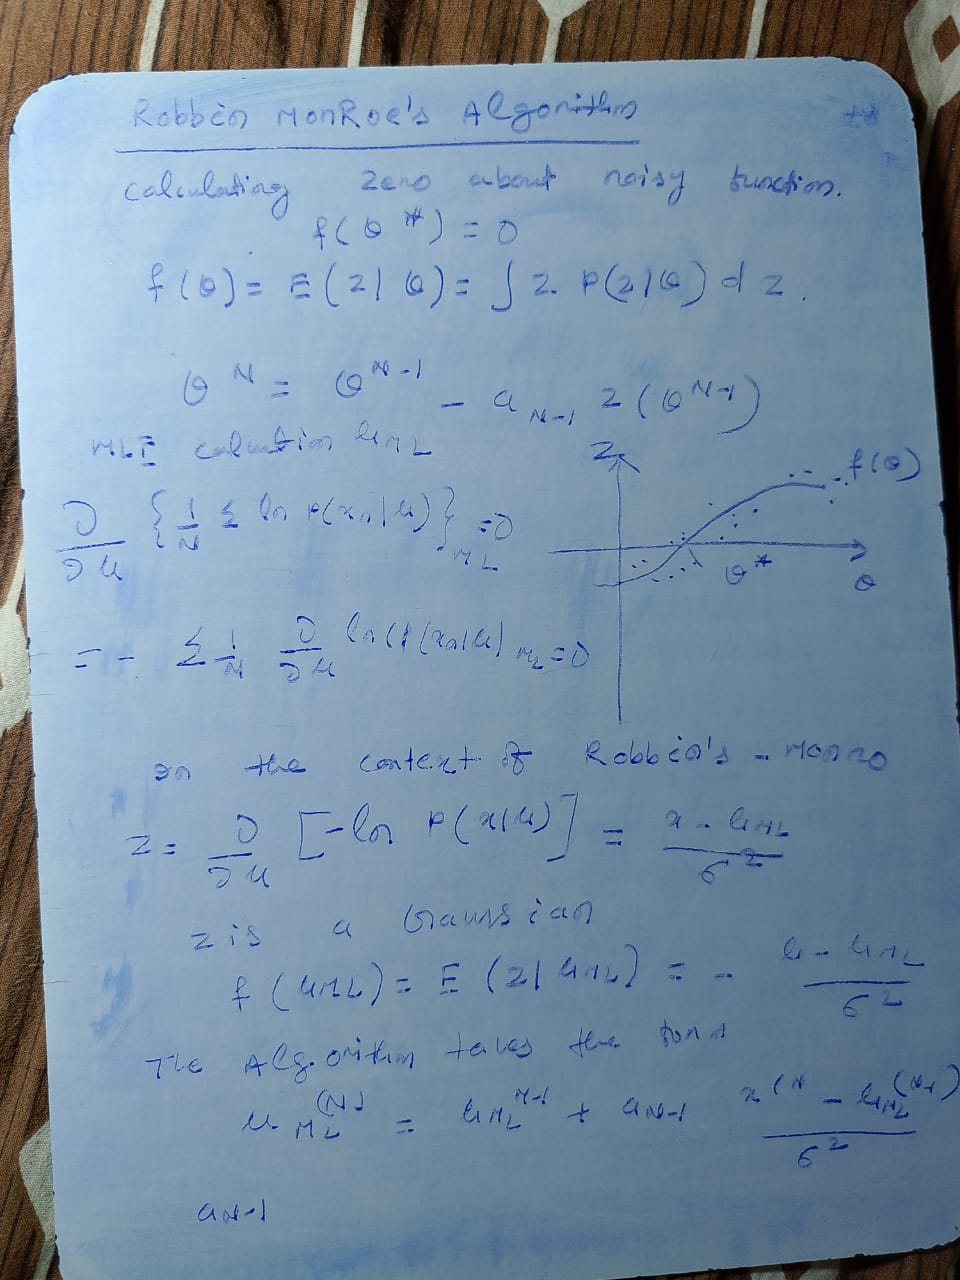 Robbin MonRoe's Algorithm
calculating zero about noisy function.
f(θ*) = 0
f(θ) = E(z|θ) = ∫ z P(z|θ) dz.
θ^N = θ^{N-1} - a_{N-1} z(θ^{N-1})
MLE calculation μ_{ML}
∂/∂μ {1/N Σ ln P(x_n|μ)}_{ML} = 0
z
f(θ)
θ*
θ
= - Σ 1/N ∂/∂μ ln P(x_n|μ)_{ML} = 0
In the context of Robbin's - Monro
z = ∂/∂μ [-ln P(x|μ)] = (x - μ_{ML})/σ²
z is a Gaussian
f(μ_{ML}) = E(z|μ_{ML}) = - (μ - μ_{ML})/σ²
The Algorithm takes the form
μ_{ML}^{(N)} = μ_{ML}^{N-1} + a_{N-1} (x^{(N} - μ_{ML}^{(N-1)})/σ²
a_{N-1}